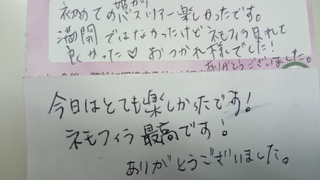 初めてのバスツアー楽しかったです。
満開ではなかったけどネモフィラ見れて
良かった♡ おつかれ様でした!
ありがとうございました。
今日はとても楽しかったです!
ネモフィラ最高です!
ありがとうございました。